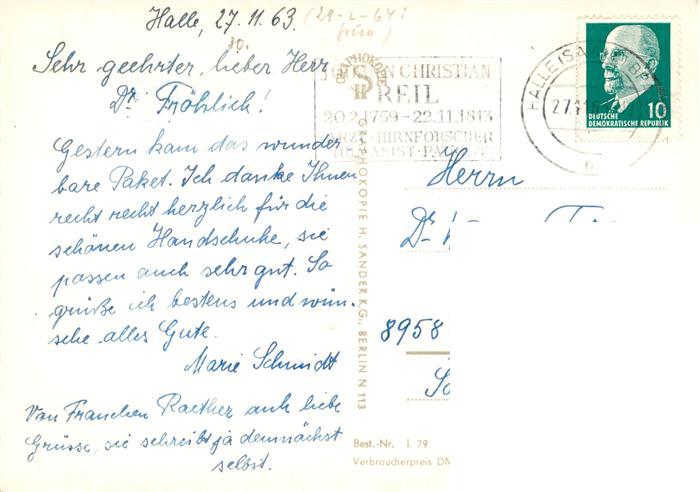 Halle, 27.11.63. (29-2-64:
30.
Sehr geehrter, lieber Herr
Dr. Fröhlich!
Gestern kam das wunder-
bare Paket. Ich danke Ihnen
recht recht herzlich für die
schönen Handschuhe, sie
passen auch sehr gut. So
grüße ich bestens und wün-
sche alles Gute.
Marie Schmidt
Von Franchen Raether auch liebe
Grüsse, sie schreibt ja demnächst
selbst.
GRAPHOKOPIE
H S
GRAPHOKOPIE H. SANDER K.G., BERLIN N 113
CHRISTIAN
REIL
20.2.1759 – 22.11.1813
ARZT · HIRNFORSCHER
HALLE (SAALE)
27.
10
DEUTSCHE
DEMOKRATISCHE REPUBLIK
Herrn
Dr.
8958
Best.-Nr. L 79
Verbraucherpreis DM